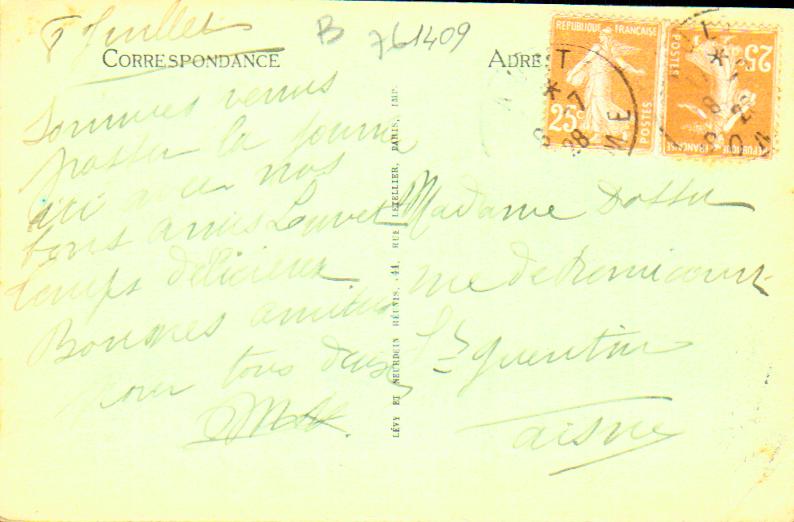 8 Juillet
B 761409
CORRESPONDANCE
ADRE
Sommes venus
passer la journée
ici avec nos
bons amis Louvet
temps délicieux
Bonnes amitiés
pour tous deux
LÉVY ET NEURDEIN RÉUNIS, 44, RUE LETELLIER, PARIS, IMP.
REPUBLIQUE FRANÇAISE
25c
POSTES
REPUBLIQUE FRANÇAISE
25
POSTES
T
* 7
8 28
ME
Madame
rue de Remicourt
St Quentin
Aisne